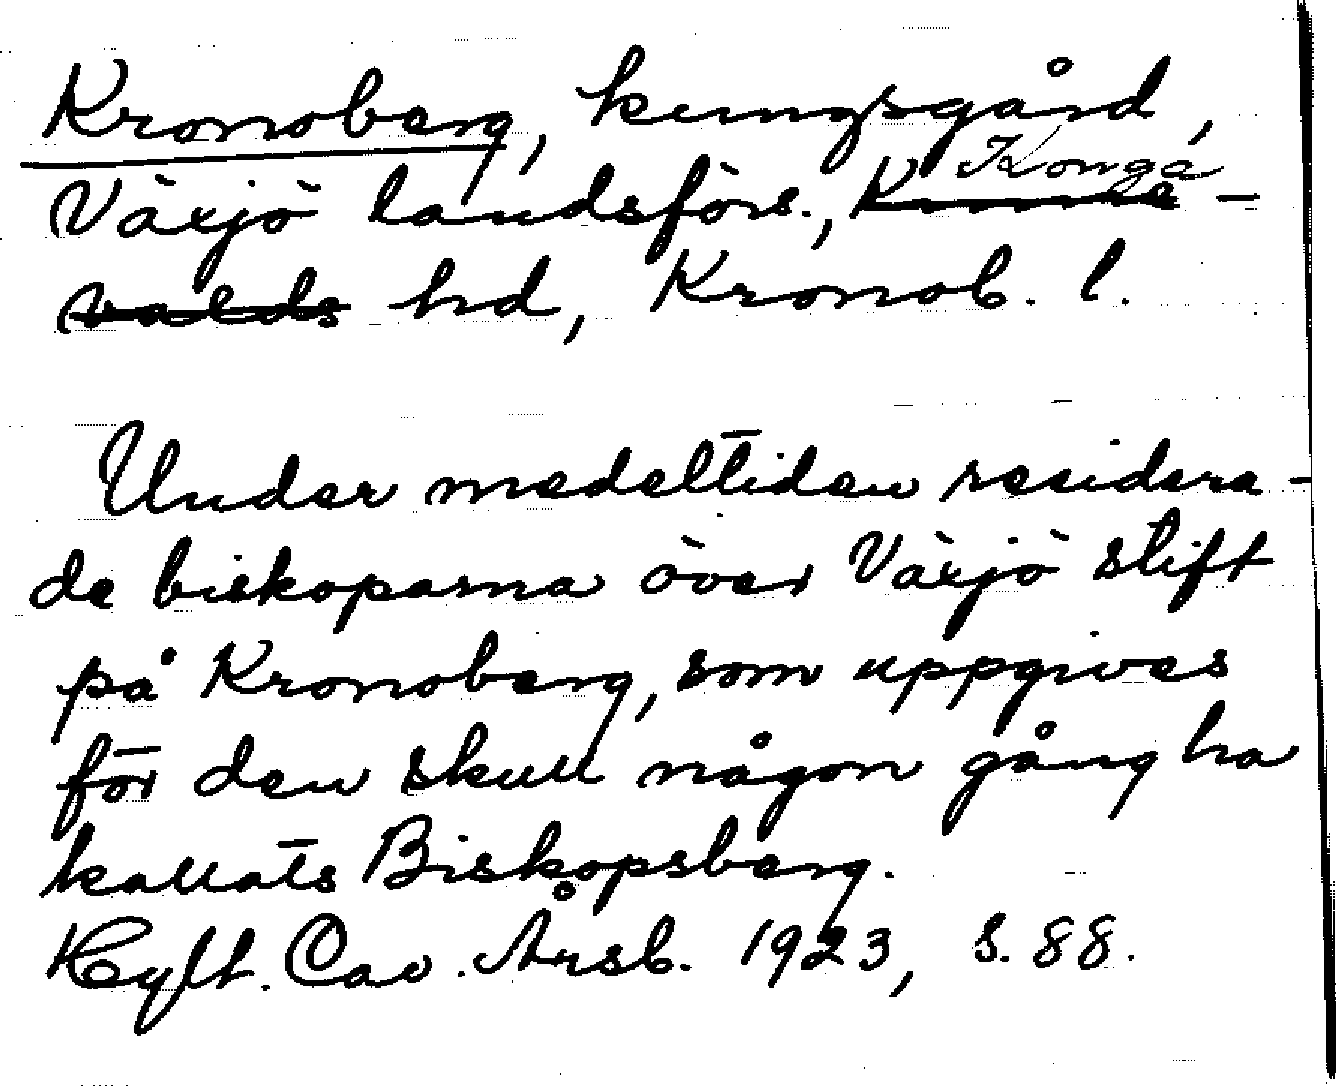 Kronoberg, kungsgård,
Växjö landsförs., Kinne- Konga
valds hd, Kronob. l.
Under medeltiden residera-
de biskoparna över Växjö stift
på Kronoberg, som uppgives
för den skull någon gång ha
kallats Biskopsberg.
Hylt. Cav. Årsb. 1923, s. 88.